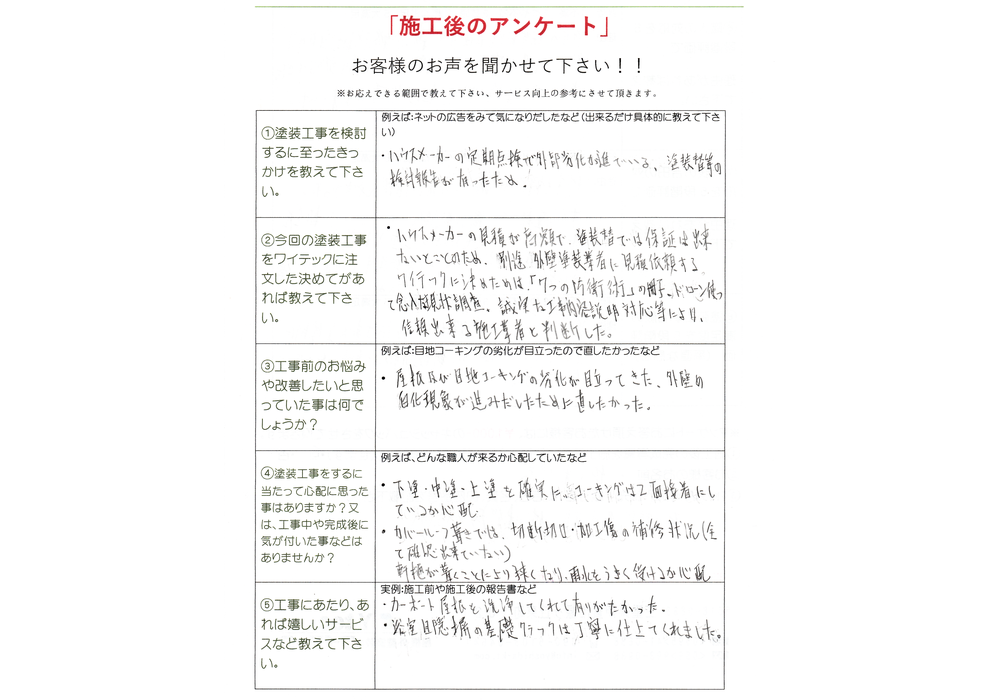 「施工後のアンケート」
お客様のお声を聞かせて下さい！！
※お応えできる範囲で教えて下さい、サービス向上の参考にさせて頂きます。
①塗装工事を検討
するに至ったきっ
かけを教えて下さ
い。
例えば:ネットの広告をみて気になりだしたなど(出来るだけ具体的に教えて下さ
い)
・ハウスメーカーの定期点検で外部劣化が進でいる、塗装替等の
検討報告が有ったため。
②今回の塗装工事
をワイテックに注
文した決めてがあ
れば教えて下さ
い。
・ハウスメーカーの見積が高額で、塗装替では保証は出来
ないとことのため、別途外壁塗装業者に見積依頼する。
ワイテックに決めためは、「7つの防衛術」の冊子。ドローン使っ
て念入な現状調査。誠実な工事内容説明対応等により、
信頼出来る施工業者と判断した。
③工事前のお悩み
や改善したいと思
っていた事は何で
しょうか？
例えば:目地コーキングの劣化が目立ったので直したかったなど
・屋根及び目地コーキングの劣化が目立ってきた、外壁の
白化現象が進みだしたために直したかった。
④塗装工事をするに
当たって心配に思った
事はありますか？又
は、工事中や完成後に
気が付いた事などは
ありませんか？
例えば、どんな職人が来るか心配していたなど
・下塗・中塗・上塗を確実に。コーキングは2面接着にし
ているか心配
・カバールーフ葺きでは、切断切口・加工傷の補修状況(全
て確認出来ていない)
が葺くことにより狭くなり、雨水をうまく受けるか心配
⑤工事にあたり、あ
れば嬉しいサービ
スなど教えて下さ
い。
実例:施工前や施工後の報告書など
・カーポート屋根を洗浄してくれて有りがたかった。
・浴室目隠塀の基礎クラックは丁寧に仕上てくれました。